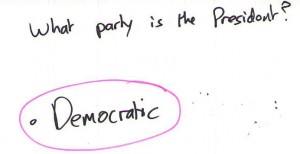 What party is the President?
• Democratic